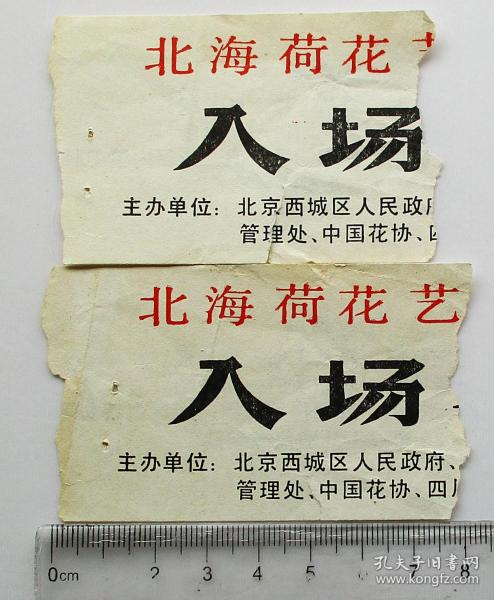 北海荷花艺
入场
主办单位：北京西城区人民政府
管理处、中国花协、四
北海荷花艺
入场
主办单位：北京西城区人民政府、
管理处、中国花协、四川
0cm 2 3 4 5 7 8
孔夫子旧书网
www.kongfz.com